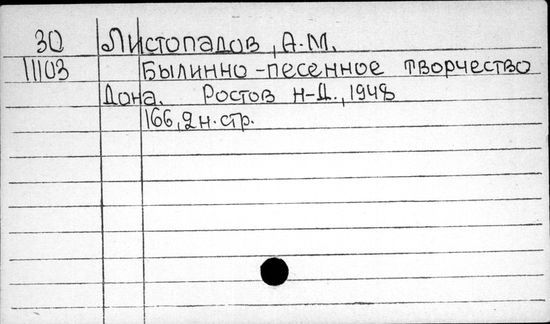 30 Листопадов, А.М.
11103 Былинно-песенное творчество
Дона. Ростов н-Д., 1948
166, 2 н. стр.